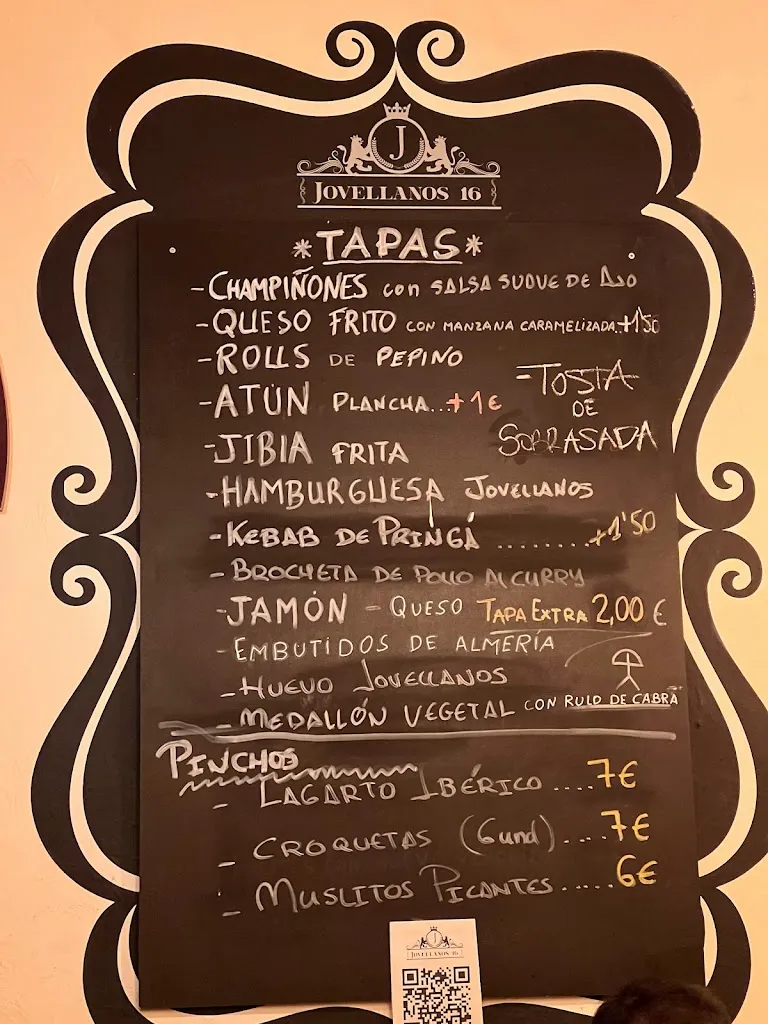 J
JOVELLANOS 16
*TAPAS*
-CHAMPIÑONES con SALSA SUAVE DE AJO
-QUESO FRITO CON MANZANA CARAMELIZADA.+1'50
-ROLLS DE PEPINO
-TOSTA
DE
SOBRASADA
-ATÚN PLANCHA...+1€
-JIBIA FRITA
-HAMBURGUESA JOVELLANOS
-KEBAB DE PRINGÁ ........+1'50
-BROCHETA DE POLLO AL CURRY
-JAMÓN - QUESO TAPA EXTRA 2,00 €
-EMBUTIDOS DE ALMERÍA
-HUEVO JOVELLANOS
-MEDALLÓN VEGETAL CON RULO DE CABRA
PINCHOS
- LAGARTO IBÉRICO ....7€
- CROQUETAS (6und)....7€
- MUSLITOS PICANTES.....6€
J
JOVELLANOS 16